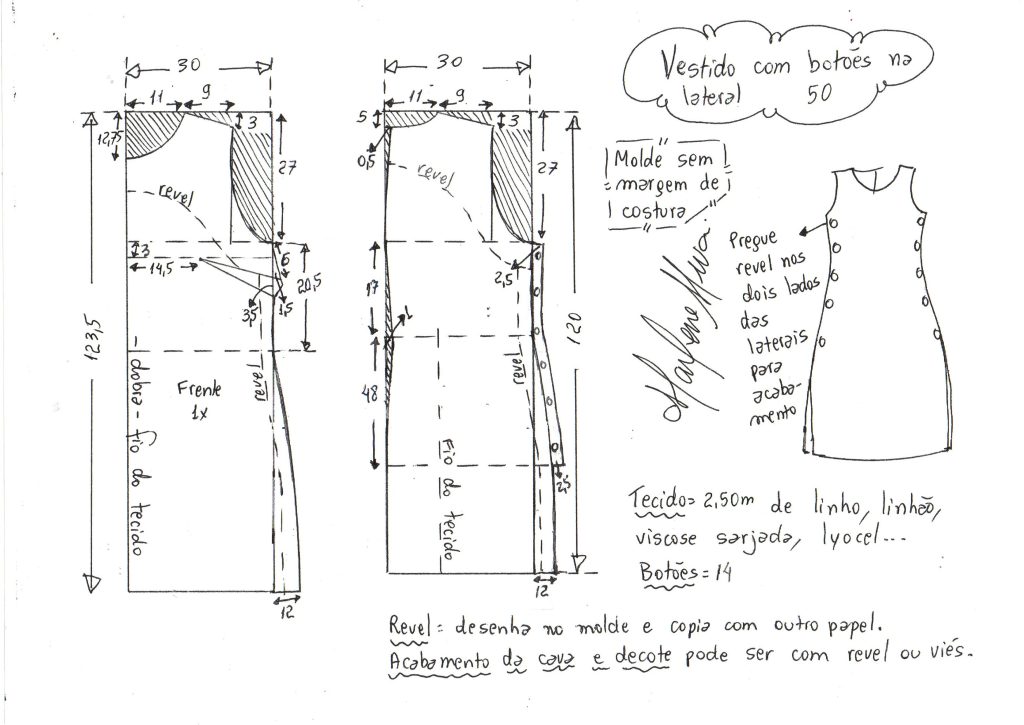 Vestido com botões na
lateral 50
Molde sem
margem de
costura
Marlene Mukai
Pregue
revel nos
dois lados
das
laterais
para
acaba-
mento
30
11
9
12,75
3
27
revel
3
14,5
6
3,5
1,5
20,5
123,5
dobra - fio do tecido
Frente
1x
revel
12
30
11
9
5
3
0,5
27
revel
2,5
17
1
48
revel
Fio do tecido
2,5
120
12
Tecido= 2,50m de linho, linhão,
viscose sarjada, lyocel...
Botões= 14
Revel= desenha no molde e copia com outro papel.
Acabamento da cava e decote pode ser com revel ou viés.